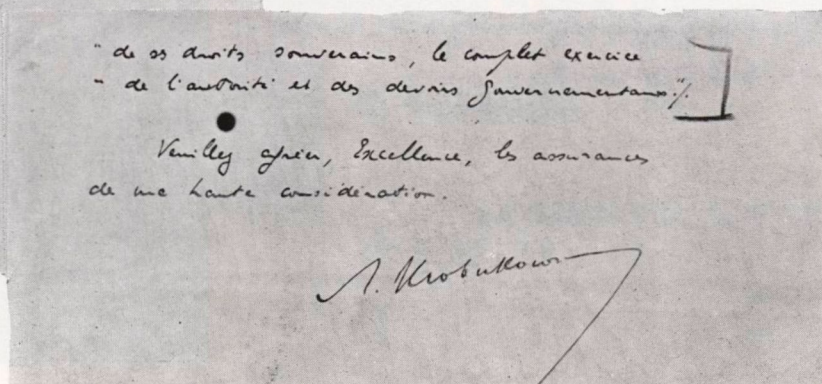 " de ses droits souverains, le complet exercice
" de l'autorité et des devoirs gouvernementaux "./.
Veuillez agréer, Excellence, les assurances
de ma haute considération.
A. Klobukowski